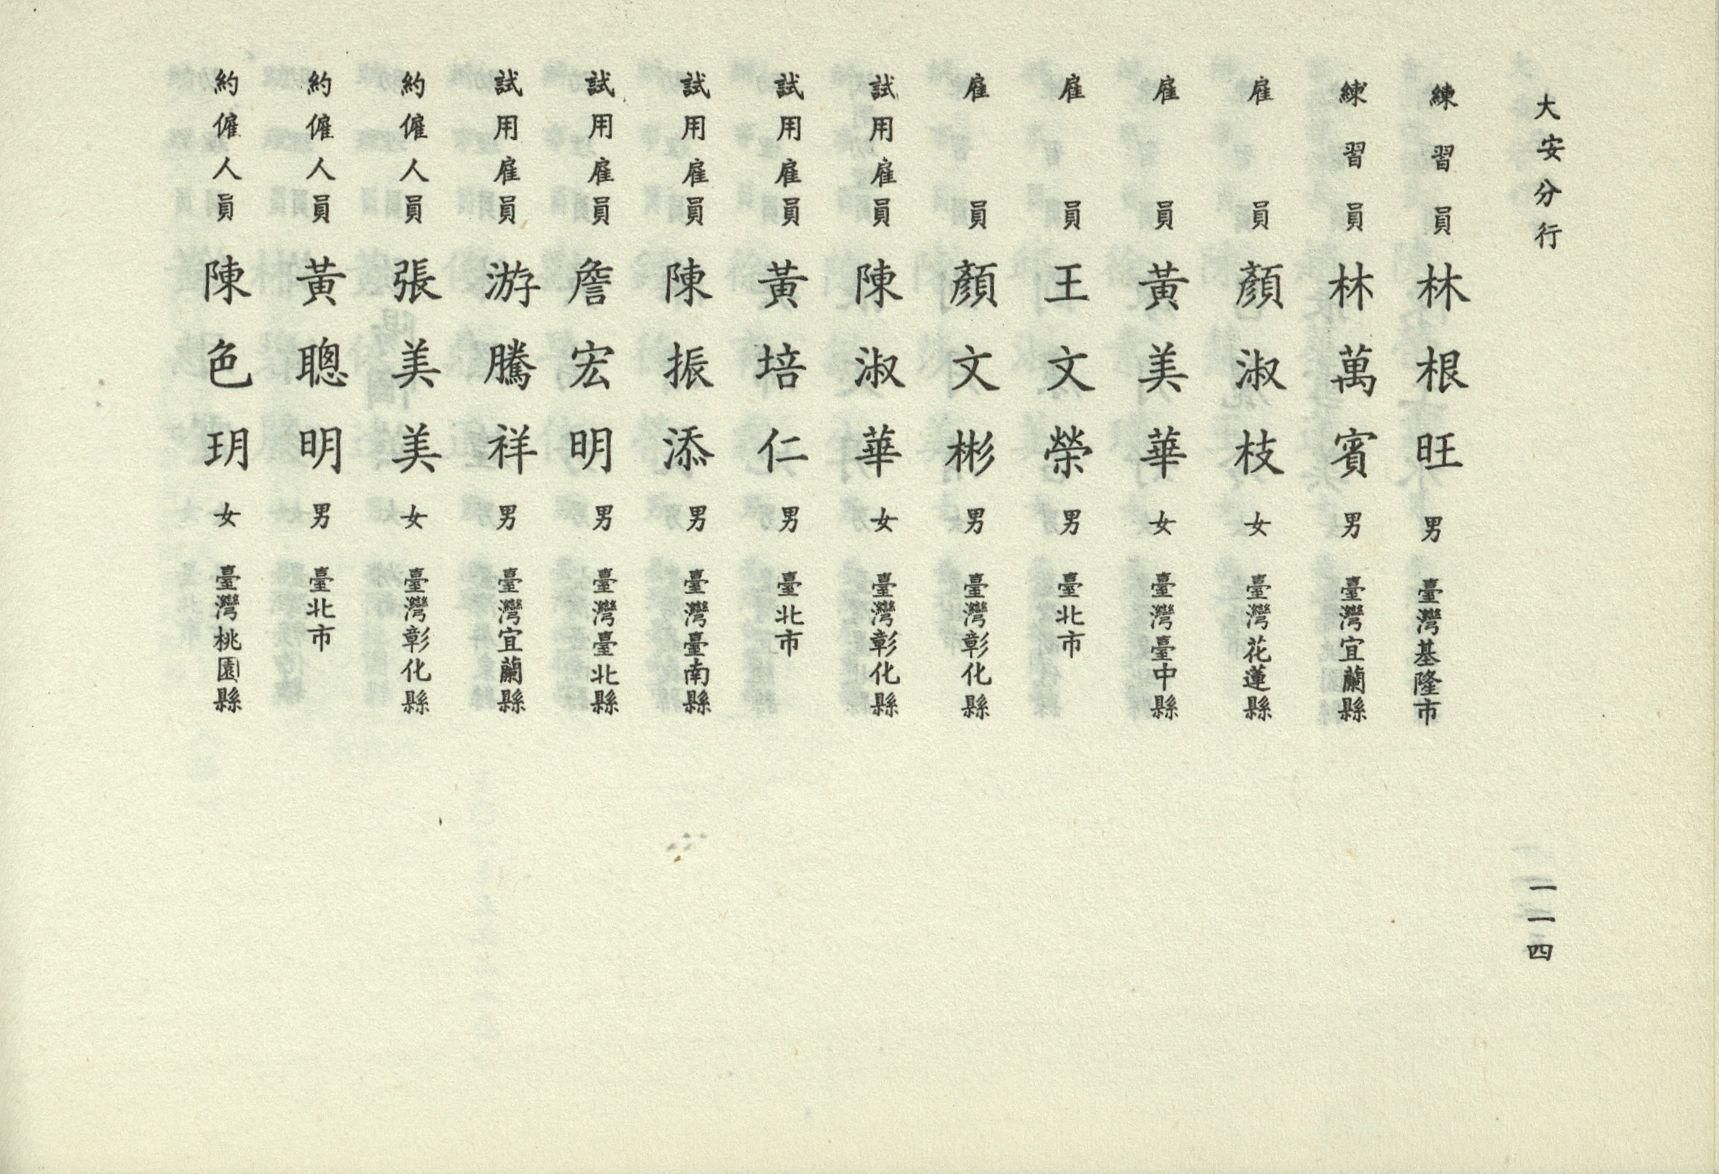 大安分行
一一四
練習員 林根旺 男 臺灣基隆市
練習員 林萬賓 男 臺灣宜蘭縣
雇員 顏淑枝 女 臺灣花蓮縣
雇員 黃美華 女 臺灣臺中縣
雇員 王文榮 男 臺北市
雇員 顏文彬 男 臺灣彰化縣
試用雇員 陳淑華 女 臺灣彰化縣
試用雇員 黃培仁 男 臺北市
試用雇員 陳振添 男 臺灣臺南縣
試用雇員 詹宏明 男 臺灣臺北縣
試用雇員 游騰祥 男 臺灣宜蘭縣
約僱人員 張美美 女 臺灣彰化縣
約僱人員 黃聰明 男 臺北市
約僱人員 陳色玥 女 臺灣桃園縣